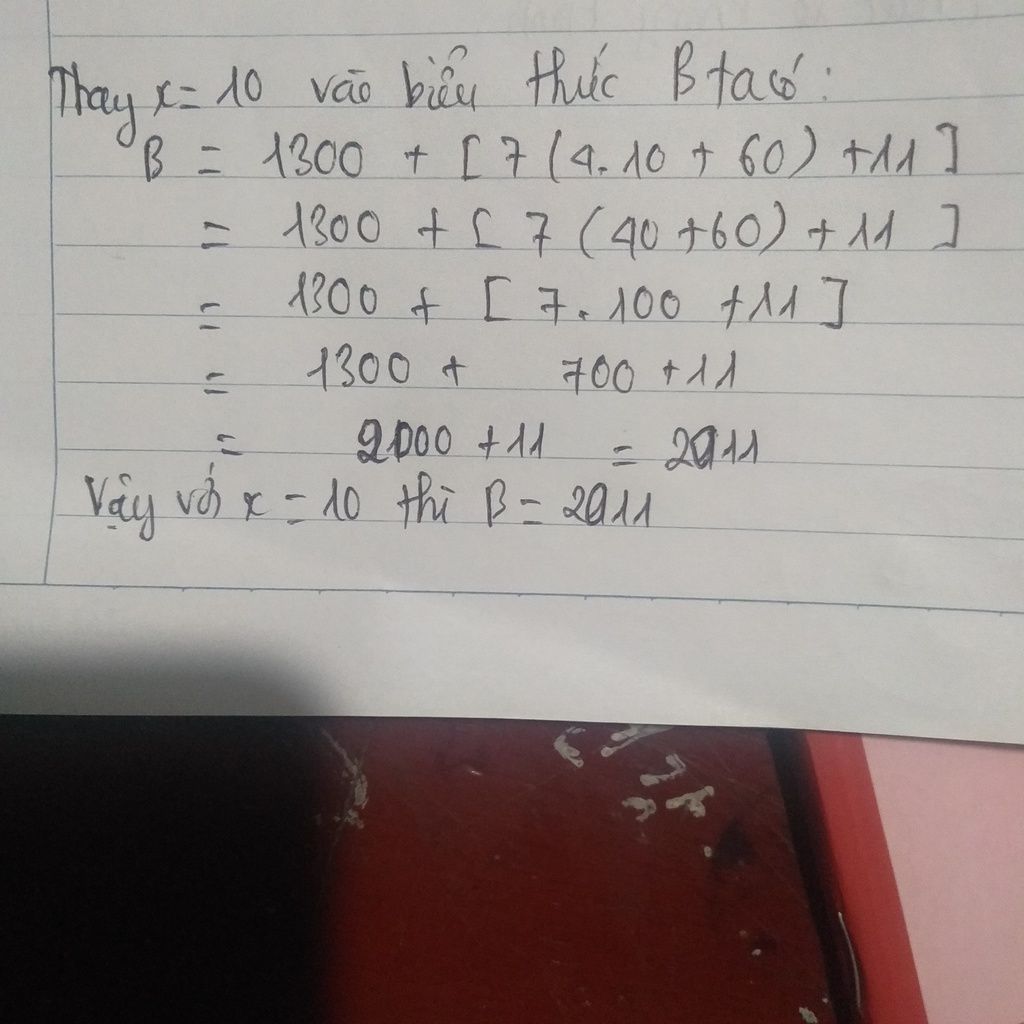 Thay x = 10 vào biểu thức B ta có:
B = 1300 + [ 7 ( 4. 10 + 60 ) + 11 ]
= 1300 + [ 7 ( 40 + 60 ) + 11 ]
= 1300 + [ 7. 100 + 11 ]
= 1300 + 700 + 11
= 2000 + 11 = 2011
Vậy với x = 10 thì B = 2011